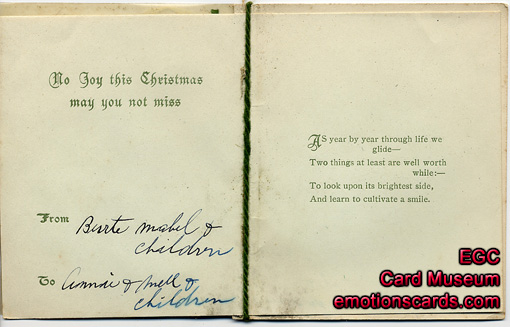 No Joy this Christmas
may you not miss
From Berte Mabel &
children
To Annie & Mell &
children
AS year by year through life we
glide—
Two things at least are well worth
while:—
To look upon its brightest side,
And learn to cultivate a smile.
EGC
Card Museum
emotionscards.com